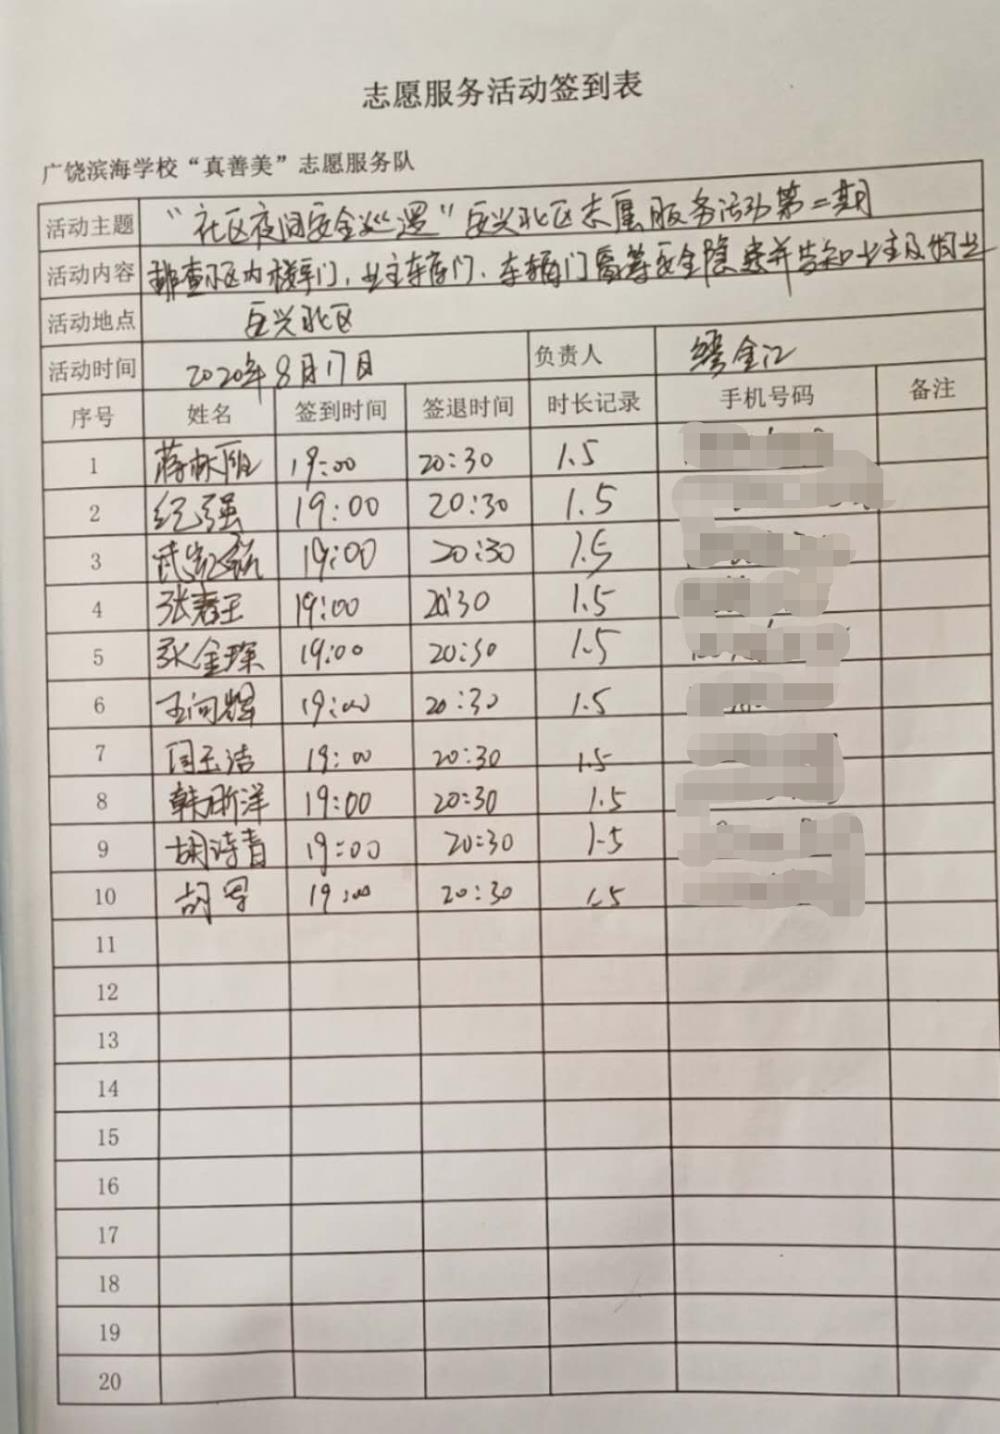 志愿服务活动签到表
广饶滨海学校“真善美”志愿服务队
活动主题 “社区夜间安全巡逻”乐兴北区志愿服务活动第二期
活动内容 排查小区内楼车门、业主车库门、车辆门窗等安全隐患并告知业主及物业
活动地点 乐兴北区
活动时间 2020年8月17日 负责人 金江
序号 姓名 签到时间 签退时间 时长记录 手机号码 备注
1 蒋林 19:00 20:30 1.5
2 纪强 19:00 20:30 1.5
3 武 19:00 20:30 1.5
4 张春玉 19:00 20:30 1.5
5 张金琛 19:00 20:30 1.5
6 王向辉 19:00 20:30 1.5
7 闫玉洁 19:00 20:30 1.5
8 韩浙洋 19:00 20:30 1.5
9 胡诗青 19:00 20:30 1.5
10 胡 19:00 20:30 1.5
11
12
13
14
15
16
17
18
19
20